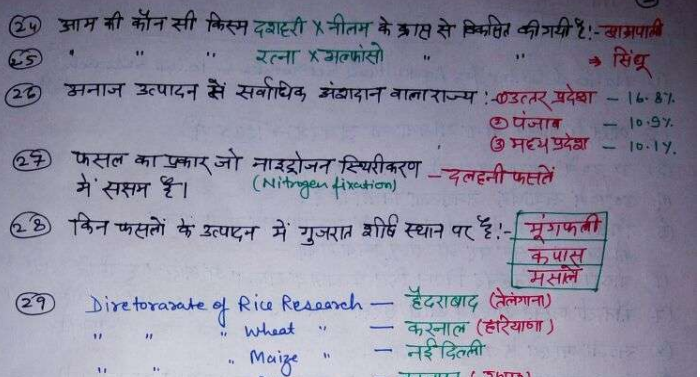 (24) आम की कौन सी किस्म दशहरी X नीलम के क्रास से विकसित की गयी है!- आम्रपाली
(25) " " " रत्ना X अल्फांसो " " → सिंधू
(26) अनाज उत्पादन में सर्वाधिक अंशदान वाला राज्य :- ① उत्तर प्रदेश - 16.8%
② पंजाब - 10.9%
③ मध्य प्रदेश - 10.1%
(27) फसल का प्रकार जो नाइट्रोजन स्थिरीकरण - दलहनी फसलें
में सक्षम है। (Nitrogen fixation)
(28) किन फसलों के उत्पादन में गुजरात शीर्ष स्थान पर है!- मूंगफली
कपास
मसाले
(29) Diretorarate of Rice Research - हैदराबाद (तेलंगाना)
" " " Wheat " - करनाल (हरियाणा)
" " " Maize " - नई दिल्ली